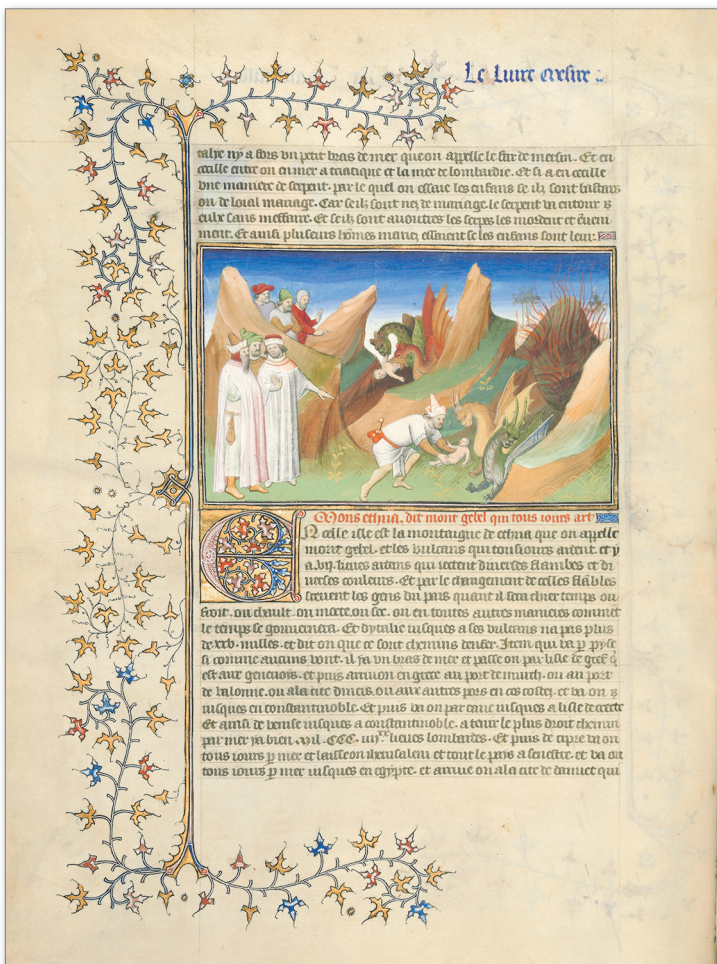 Le livre messire
talye ny a fors un petit bras de mer que on appelle le far de meschin. Et en
ceulle entre on en mer adriatique et la mer de lombardie. Et si a en ceulle
une maniere de serpent. par le quel on essaie les enfans se ilz sont bastars
ou de loial mariage. Car se ilz sont nez de mariage. le serpent va entour
eulx sans meffaire. Et se ilz sont avoultres les serpens les mordent et
ment. Et ainsi pluseurs hommes mariez essaient se les enfans sont leur.
Mons ethna. dit mont gebel qui tous iours art
En celle isle est la montaigne de ethna que on appelle
mont gebel. et les vulcans qui tousiours ardent. et y
a .vii. lieues ardans qui iettent diverses flambes et di
verses couleurs. Et par le changement de celles flambes
scevent les gens du pais quant il sera chier temps ou
froit. ou chault. ou moete. ou sec. ou en toutes autres manieres comment
le temps se gouvernera. Et dytalie iusques a ses vulcans na pas plus
de .xxv. milles. et dit on que ce sont chemins denfer. Item qui va par pyse
si comme aucuns vont. il y a un bras de mer et passe on par lisle de
est aux genevois. et puis arrive on en grece au port de mirroch. ou au port
de valonne. ou a la cite ou aux autres pors en ces costez. et va on
iusques en constantinoble. Et puis va on par eaue iusques a lisle de crete
Et ainsi de venise iusques a constantinoble. a tour le plus droit chemin
par mer y a bien .mil. CCC. iiii xx lieues lombardes. Et puis de cipre va on
tous iours par mer et laisse on iherusalem et tout le pays a senestre. et va on
tous iours par mer iusques en egypte. et arrive on a la cite de damiet qui